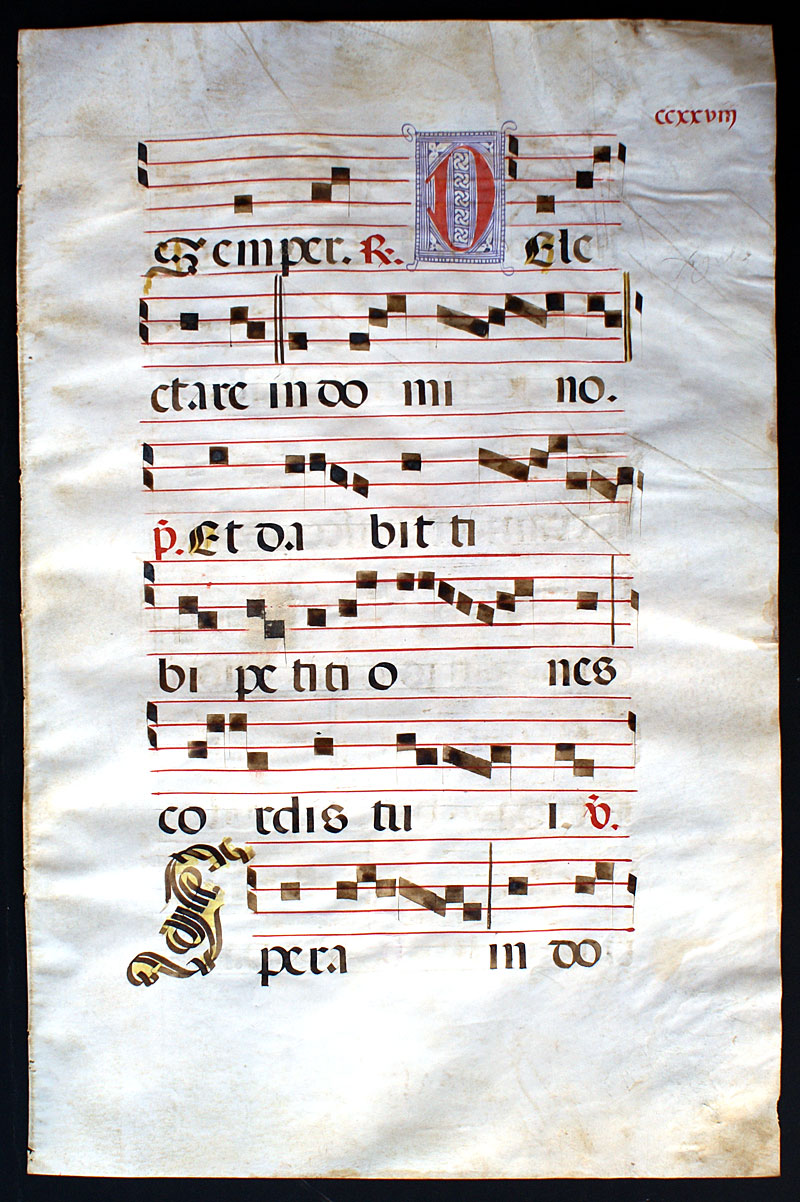 ccxxviii
Semper. R. D Ele
ctare in do mi no.
p. Et da bit ti
bi pe ti ti o nes
co rdis tu i. v.
S pera in do